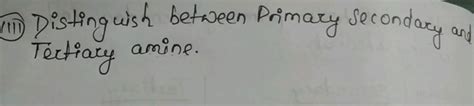 (iiii) Distinguish between Primary Secondary and
Tertiary amine.